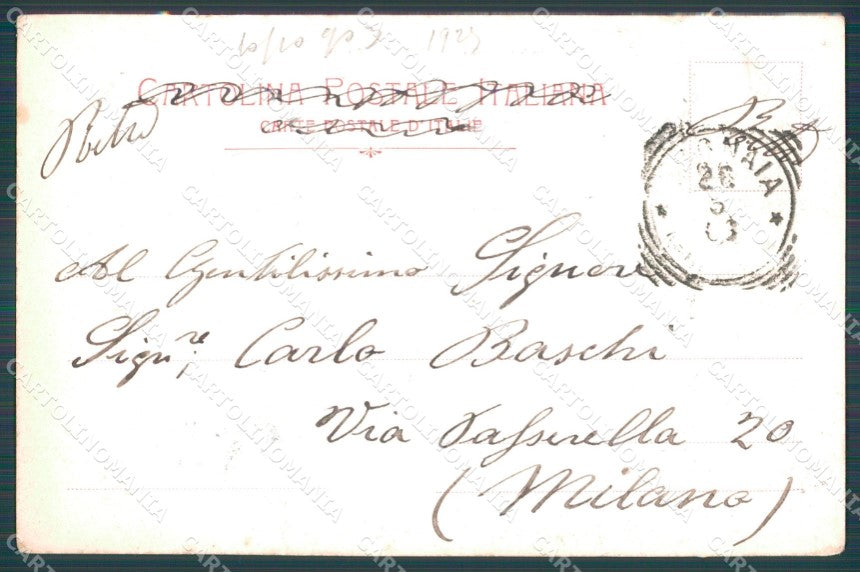 1925
CARTOLINA POSTALE ITALIANA
CARTE POSTALE D'ITALIE
Al Gentilissimo Signore
Sign.re Carlo Baschi
Via Passerella 20
(Milano)
26
CARTOLINOMANIA